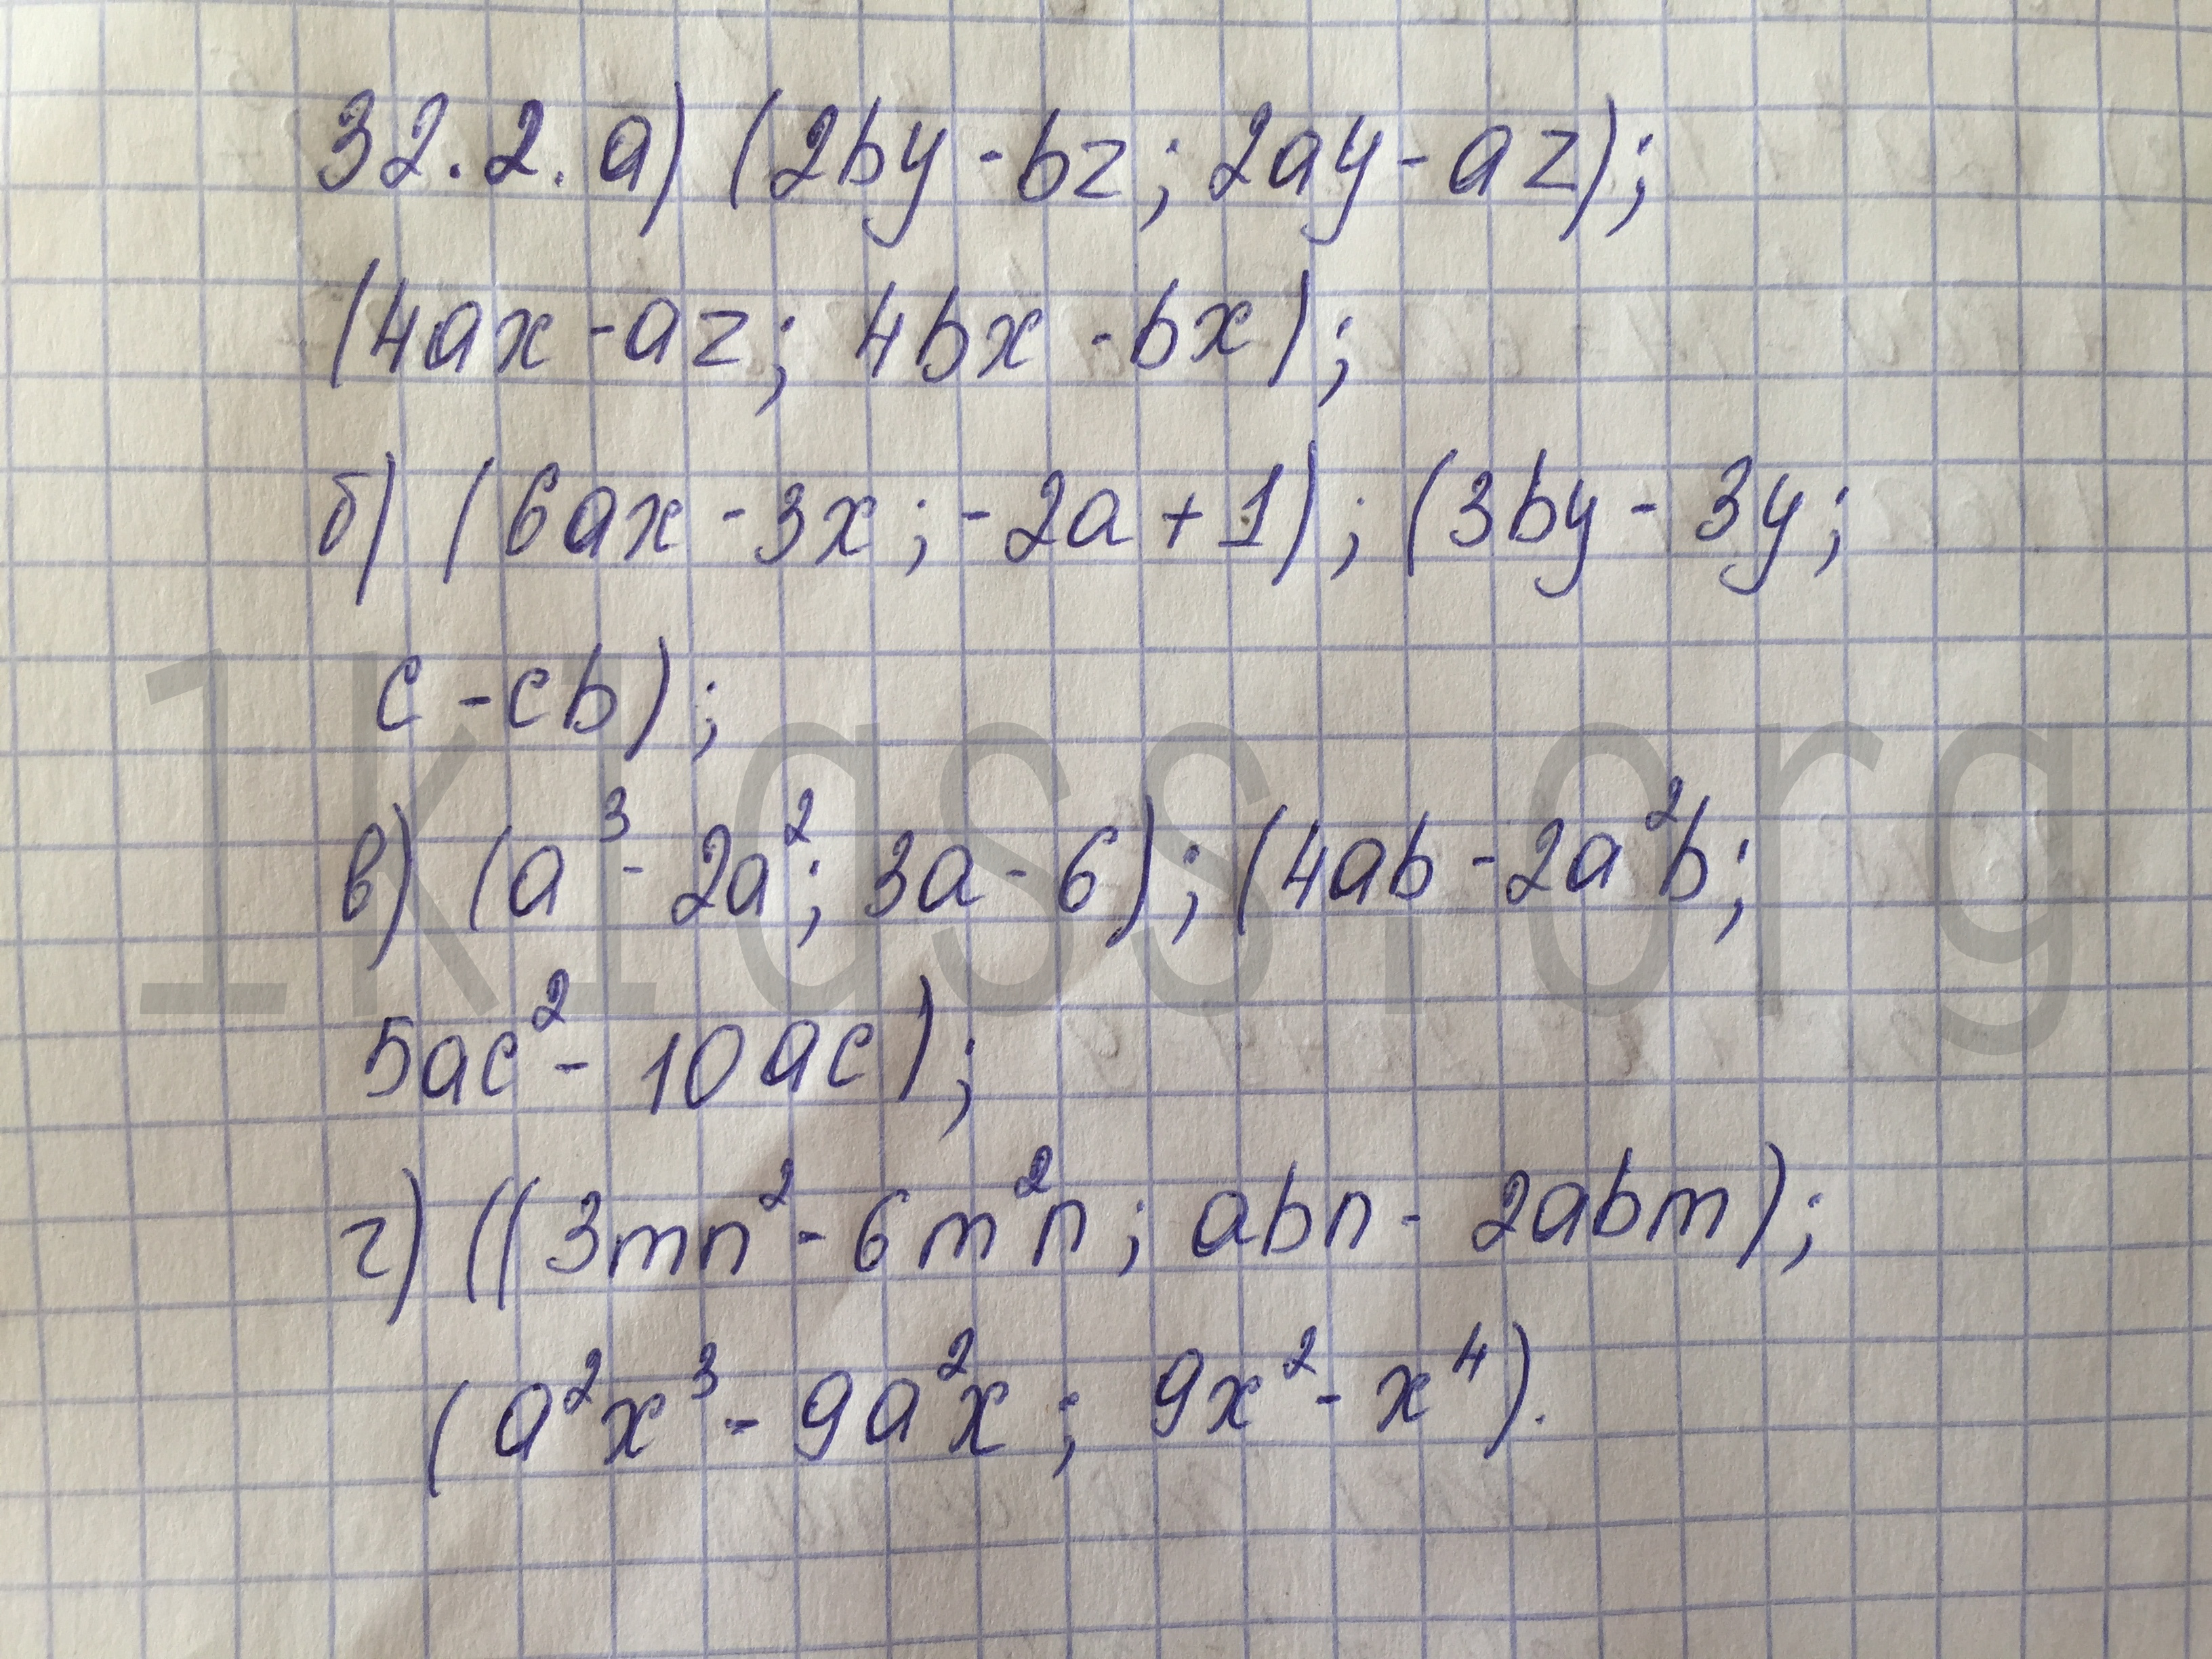 32.2. а) (2by - bz; 2ay - az);
(4ax - az; 4bx - bx);
б) (6ax - 3x; -2a + 1); (3by - 3y;
c - cb);
1klass.org
в) (a³ - 2a²; 3a - 6); (4ab - 2a²b;
5ac² - 10ac);
г) ((3mn² - 6m²n; abn - 2abm);
(a²x³ - 9a²x; 9x² - x⁴).